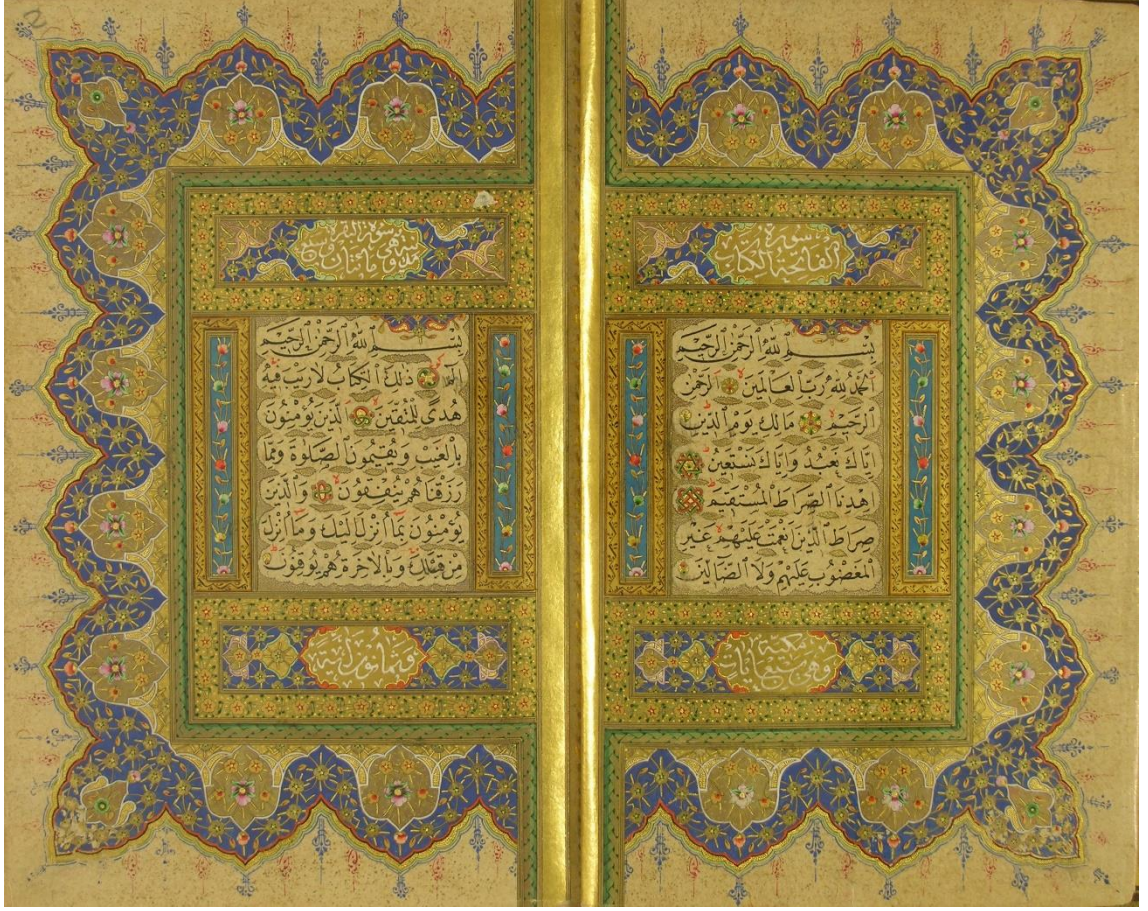 سورة
الفاتحة الكتاب
بسم الله الرحمن الرحيم
الحمد لله رب العالمين الرحمن
الرحيم مالك يوم الدين
اياك نعبد واياك نستعين
اهدنا الصراط المستقيم
صراط الذين انعمت عليهم غير
المغضوب عليهم ولا الضالين
مكية
وهي سبع ايات
سورة البقرة
مدنية وهي مائتان
بسم الله الرحمن الرحيم
الم ذلك الكتاب لا ريب فيه
هدى للمتقين الذين يؤمنون
بالغيب ويقيمون الصلوة ومما
رزقناهم ينفقون والذين
يؤمنون بما انزل اليك وما انزل
من قبلك وبالاخرة هم يوقنون
وثمانون اية